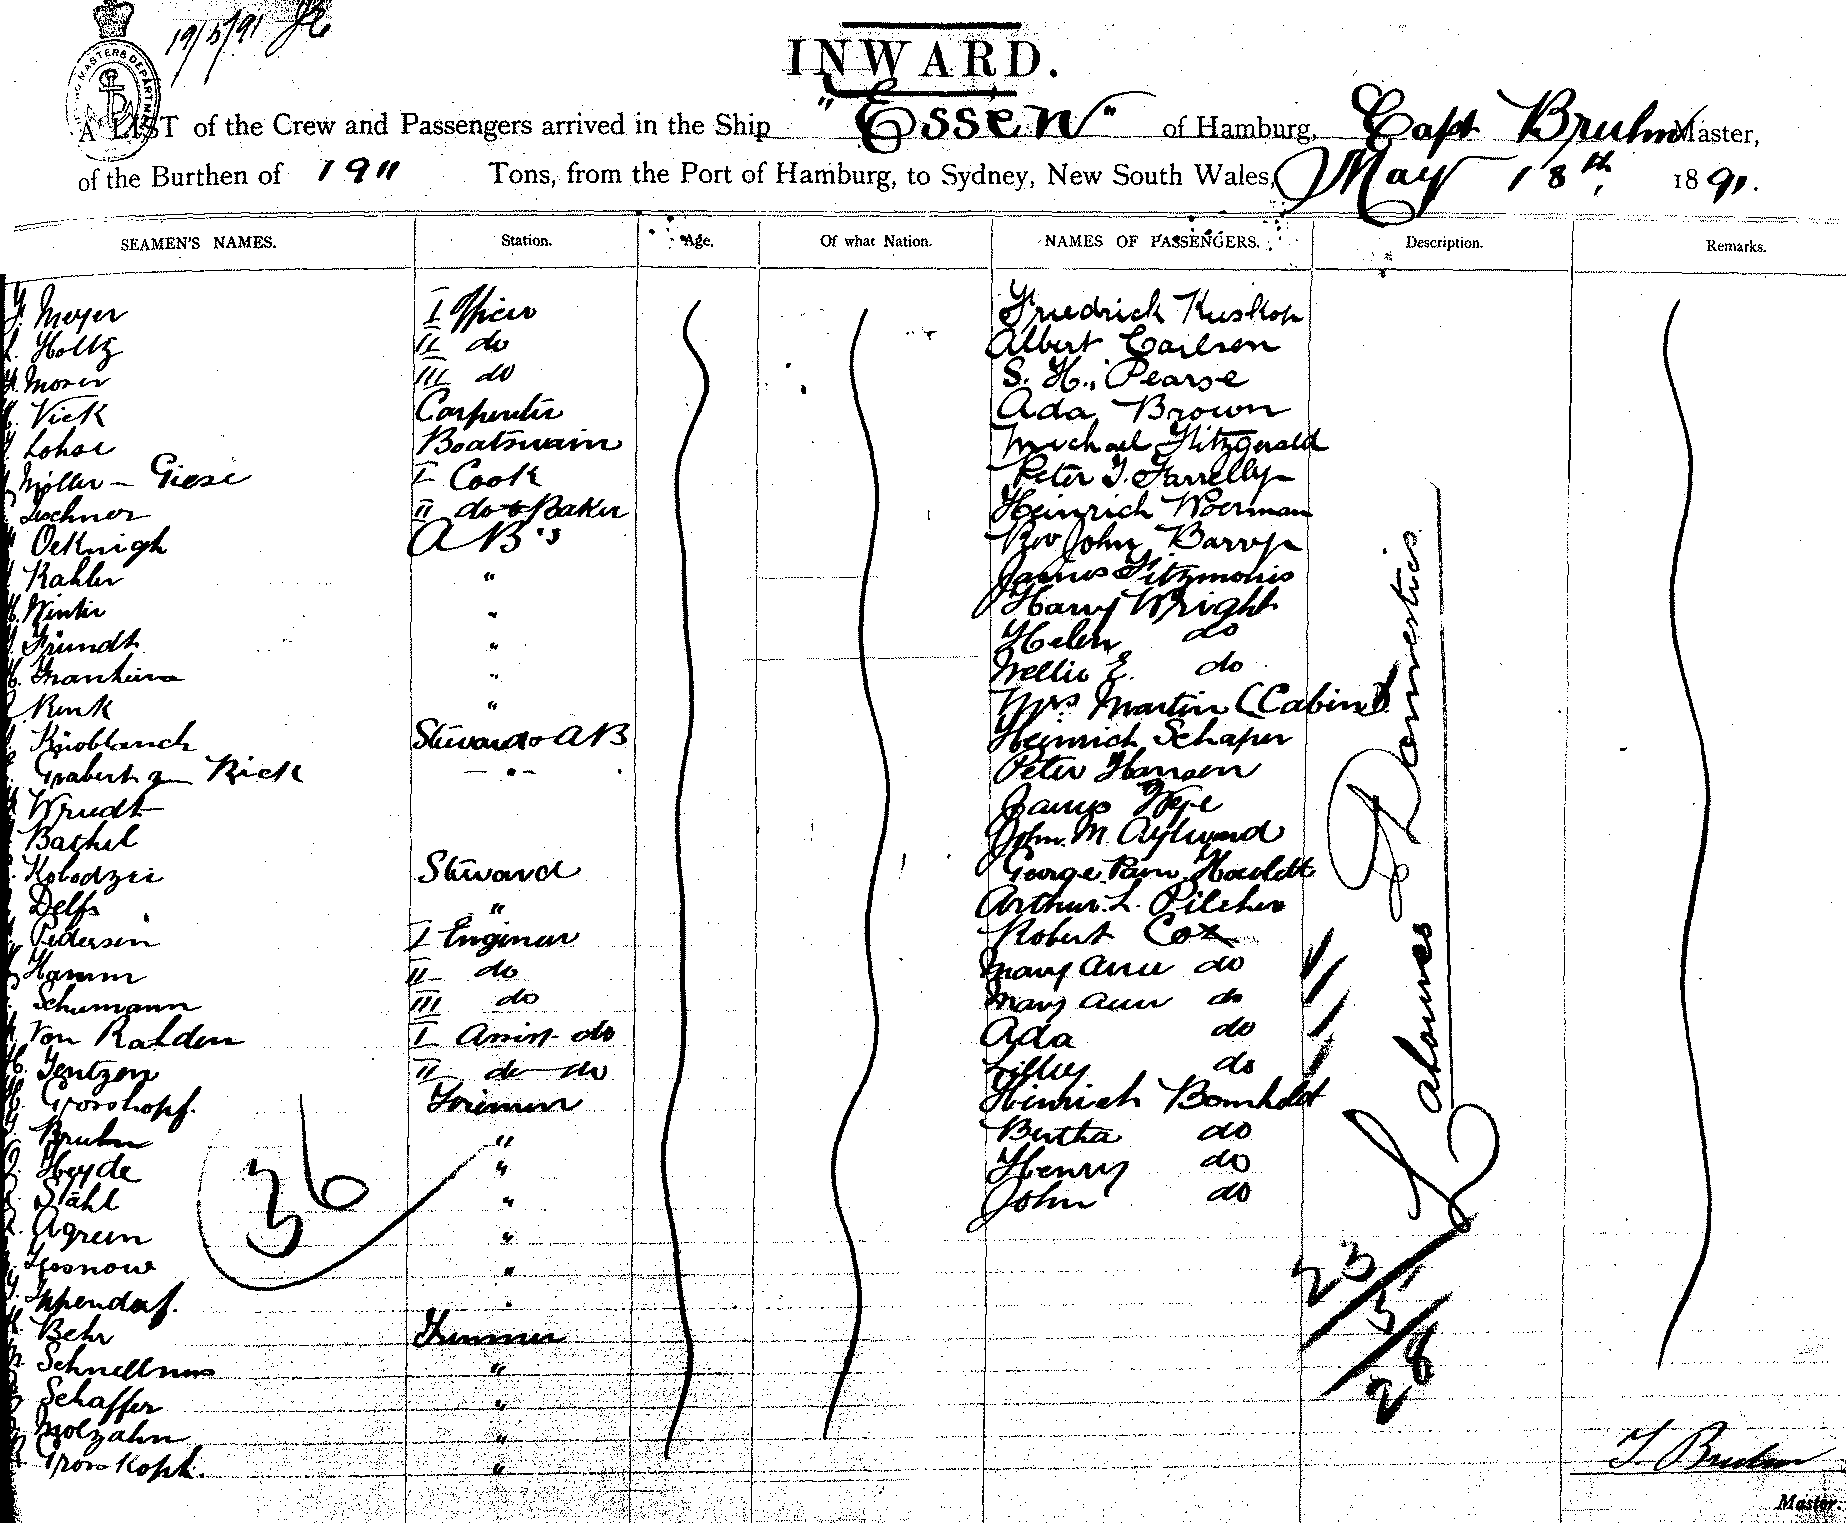 19/5/91
INWARD.
A LIST of the Crew and Passengers arrived in the Ship "Essen" of Hamburg, Capt Bruhn Master,
of the Burthen of 1911 Tons, from the Port of Hamburg, to Sydney, New South Wales, May 18th, 1891.
SEAMEN'S NAMES. Station. Age. Of what Nation. NAMES OF PASSENGERS. Description. Remarks.
Meyer I Officer Friedrich Kuskop
Holtz II do Albert Carlsen
Moser III do S. H. Pearse
Vick Carpenter Ada Brown
Lohse Boatswain Michael Fitzgerald
Möller - Giese I Cook Peter J. Farrelly
Leschner II do & Baker Heinrich Woerman
Oeknigh AB's Rev John Barry
Kahler " James Fitzmoris
Winter " Harry Wright
Fründt " Helen do
" Nellie E. do
Rink " Mrs Martin (Cabin)
Knoblauch Steward & AB Heinrich Schaper
Rick " Peter Hansen
Wrudt James
Bathel John M. Aylward
Kolodzei Steward George Howlett
Delfs " Arthur L. Pilcher
Pedersen I Engineer Robert Cox
Hamm II do Mary Ann do
Schumann III do Mary Ann do
Von Rahden I Assist do Ada do
Jentzen II do do Lilley do
Grosskopf. Firemen Heinrich Bomholdt
Bruhn " Bertha do
Heyde " Henry do
Stahl " John do
Agreen "
Gosnow "
Ippendorf. "
Behr Trimmer
"
Schaffer "
Molzahn "
Grosskopf. "
36
Labourers & Domestics
23/5/28
J. Bruhn
Master.